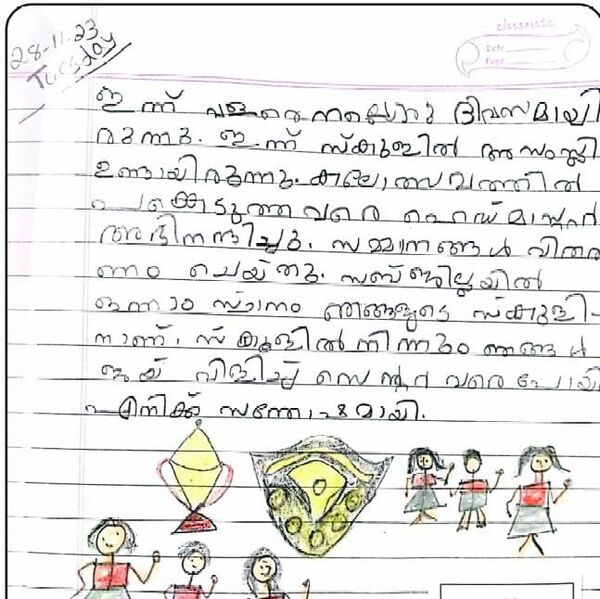 classmate
Date
Page
28-11-23
Tuesday
ഇന്ന് വളരെ നല്ലൊരു ദിവസമായി
രുന്നു. ഇന്ന് സ്കൂളിൽ അസംബ്ലി
ഉണ്ടായിരുന്നു. കലോത്സവത്തിൽ
പങ്കെടുത്തവരെ ഹെഡ്മാസ്റ്റർ
അഭിനന്ദിച്ചു. സമ്മാനങ്ങൾ വിതര
ണം ചെയ്തു. സബ്ജില്ലയിൽ
ഒന്നാം സ്ഥാനം ഞങ്ങളുടെ സ്കൂളി-
നാണ്. സ്കൂളിൽ നിന്നും ഞങ്ങൾ
ജയ് വിളിച്ച് സെന്റർ വരെ പോയി
എനിക്ക് സന്തോഷമായി.